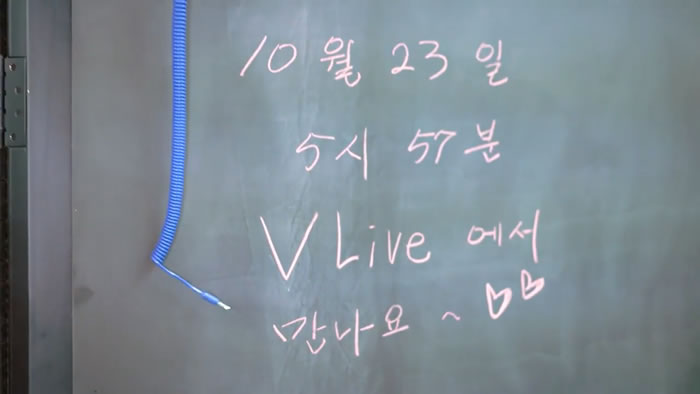 10월 23일
5시 57분
V Live 에서
만나요 ~ ♡♡